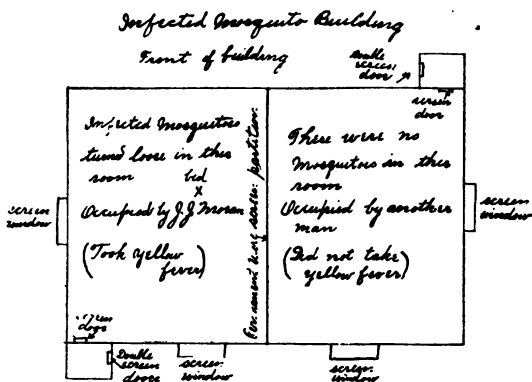 Infected Mosquito Building
Front of building
Double
screen
door
screen
door
Infected Mosquitoes
turned loose in this
room bed
x
Occupied by J.J. Moran
(Took yellow
fever)
Permanent wire screen partition.
There were no
Mosquitoes in this
room
Occupied by another
man
(Did not take
yellow fever)
screen
window
screen
window
screen
door
Double
screen
doors
screen
window
screen
window